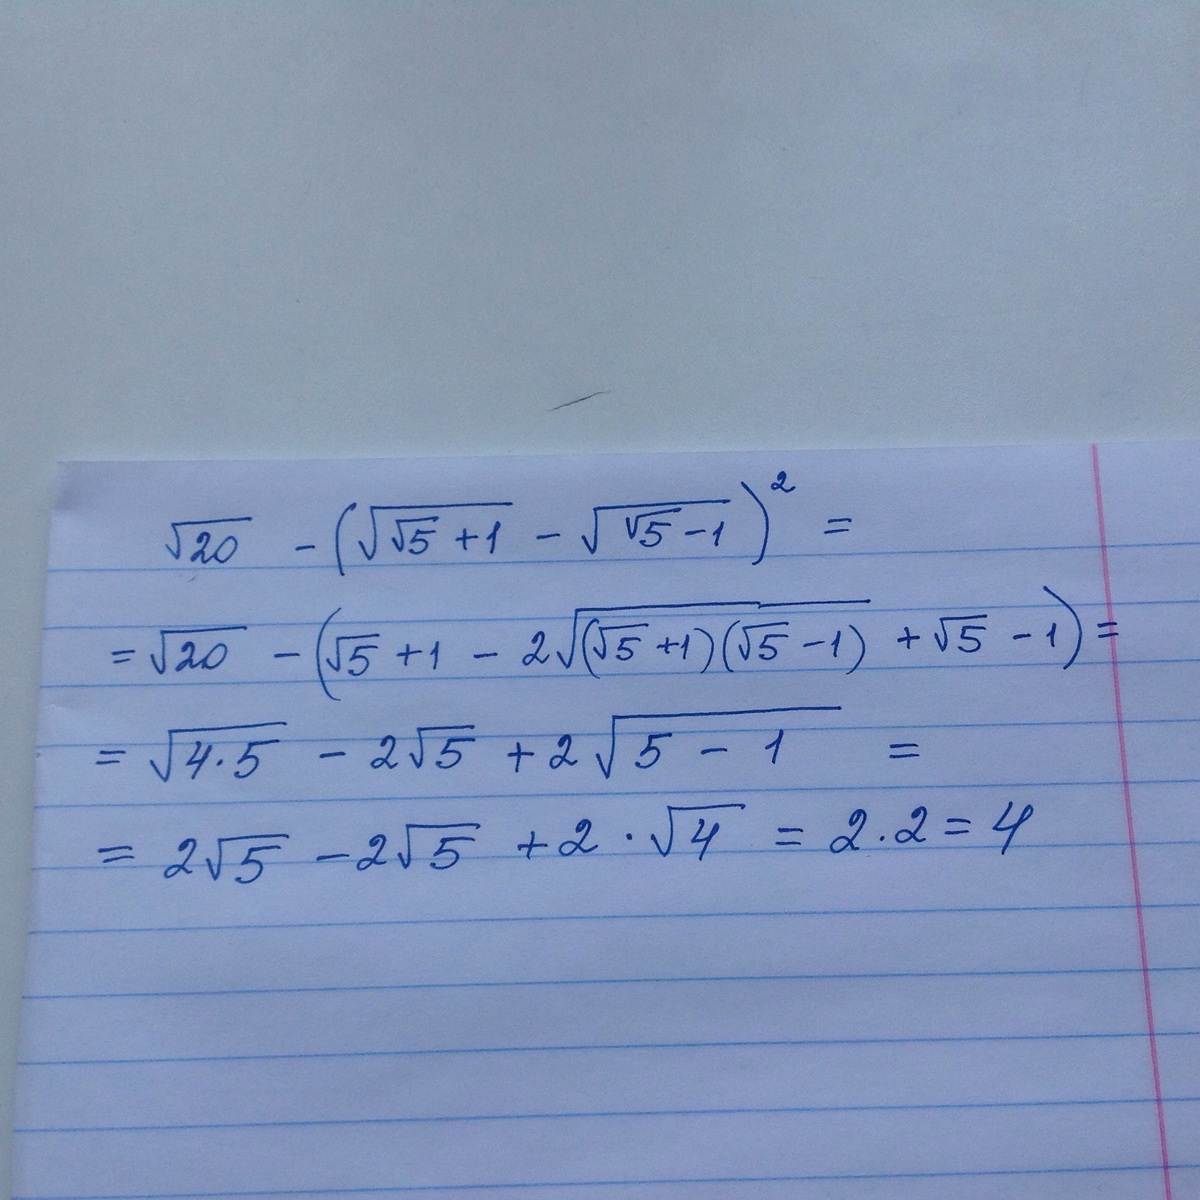 √20 - (√(√5 + 1) - √(√5 - 1))² =
= √20 - (√5 + 1 - 2√((√5 + 1)(√5 - 1)) + √5 - 1) =
= √(4·5) - 2√5 + 2√(5 - 1) =
= 2√5 - 2√5 + 2·√4 = 2·2 = 4